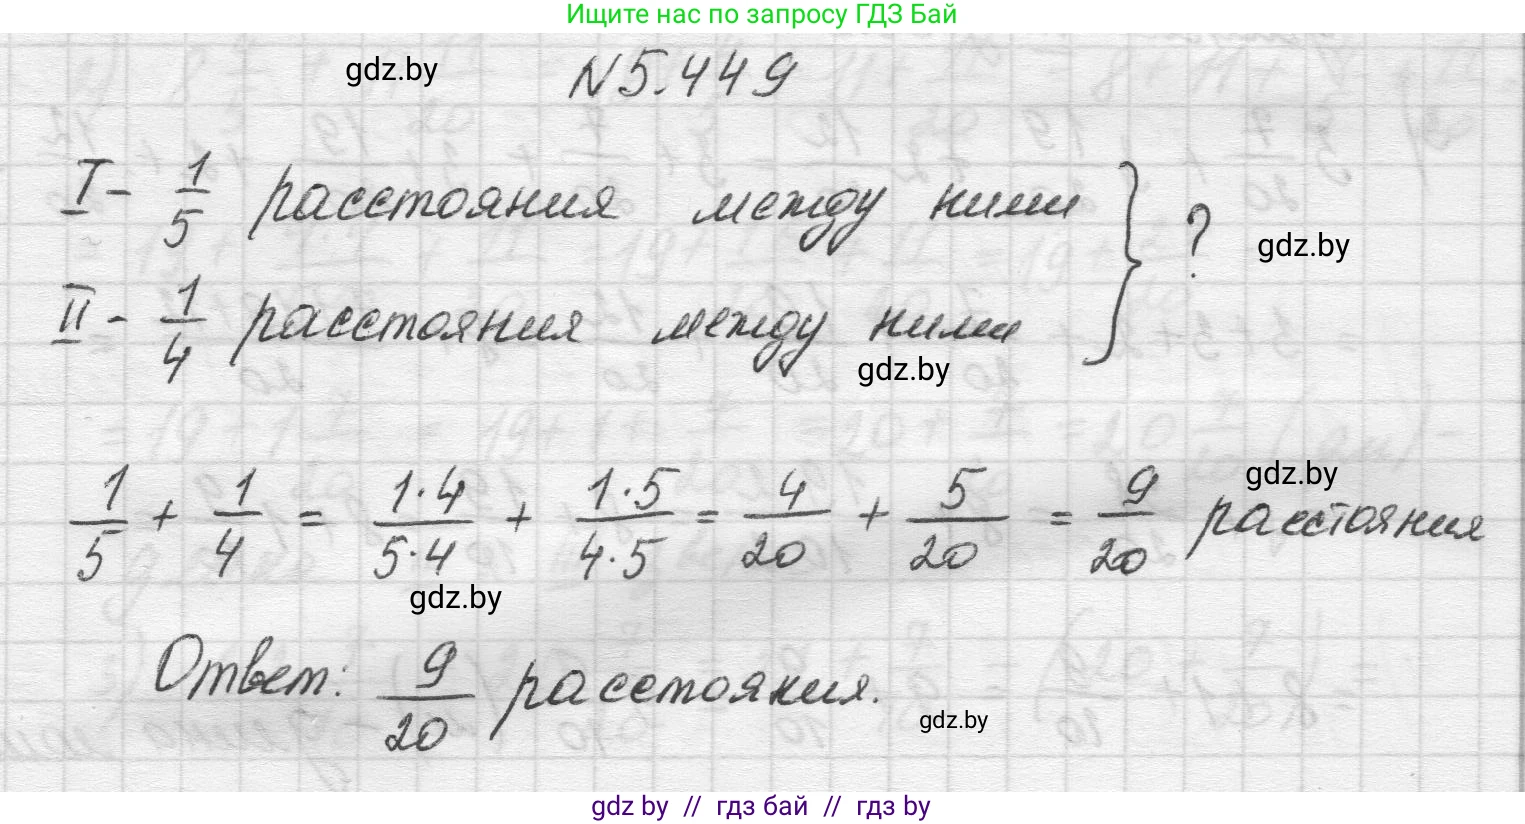 Ищите нас по запросу ГДЗ Бай
gdz.by
N 5.449
I - 1/5 расстояния между ними
II - 1/4 расстояния между ними
} ?
gdz.by
gdz.by
gdz.by
1/5 + 1/4 = 1·4/5·4 + 1·5/4·5 = 4/20 + 5/20 = 9/20 расстояния
gdz.by
Ответ: 9/20 расстояния.
gdz.by
gdz by // гдз бай // гдз by